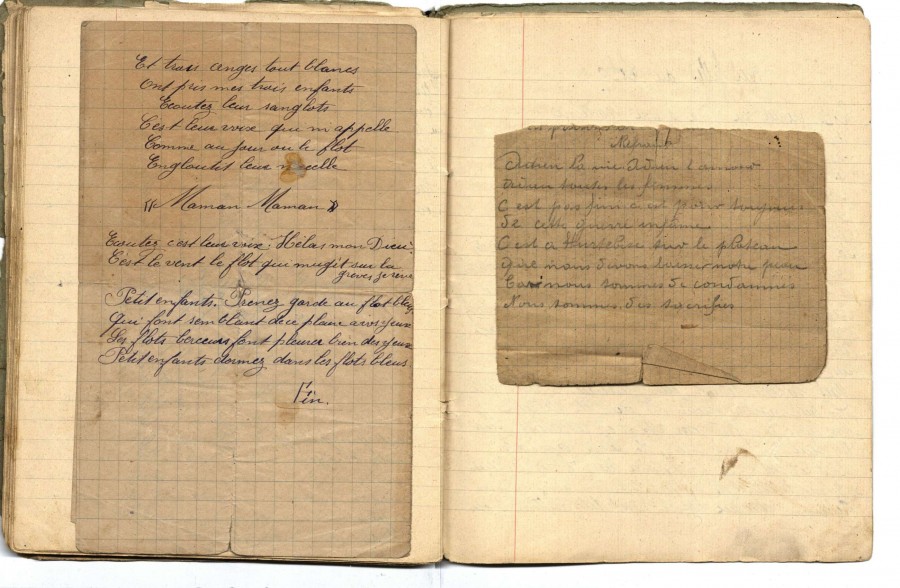 Et trois anges tout blancs
Ont pris mes trois enfants
Ecoutez leur sanglots
C'est leur voix qui m'appelle
Comme au jour ou le flot
Engloutit leur nacelle
« Maman Maman »
Ecoutez c'est leur voix. Hélas mon Dieu
C'est le vent le flot qui mugit sur la
greves je reve
Petit enfants. Prenez garde au flot bleu
Qui font semblant de ce plaire a vos yeux
Les flots berceurs font pleurer bien des yeux
Petit enfants dormez dans les flots bleus
Fin.
Refrain
Adieu la vie Adieu l'amour
Adieu toutes les femmes
C est pas fini c'est pour toujours
De cette guerre infame
C'est a sur le plateau
que nous devons laisser notre peau
Car nous sommes de condamnés
Nous sommes des sacrifies